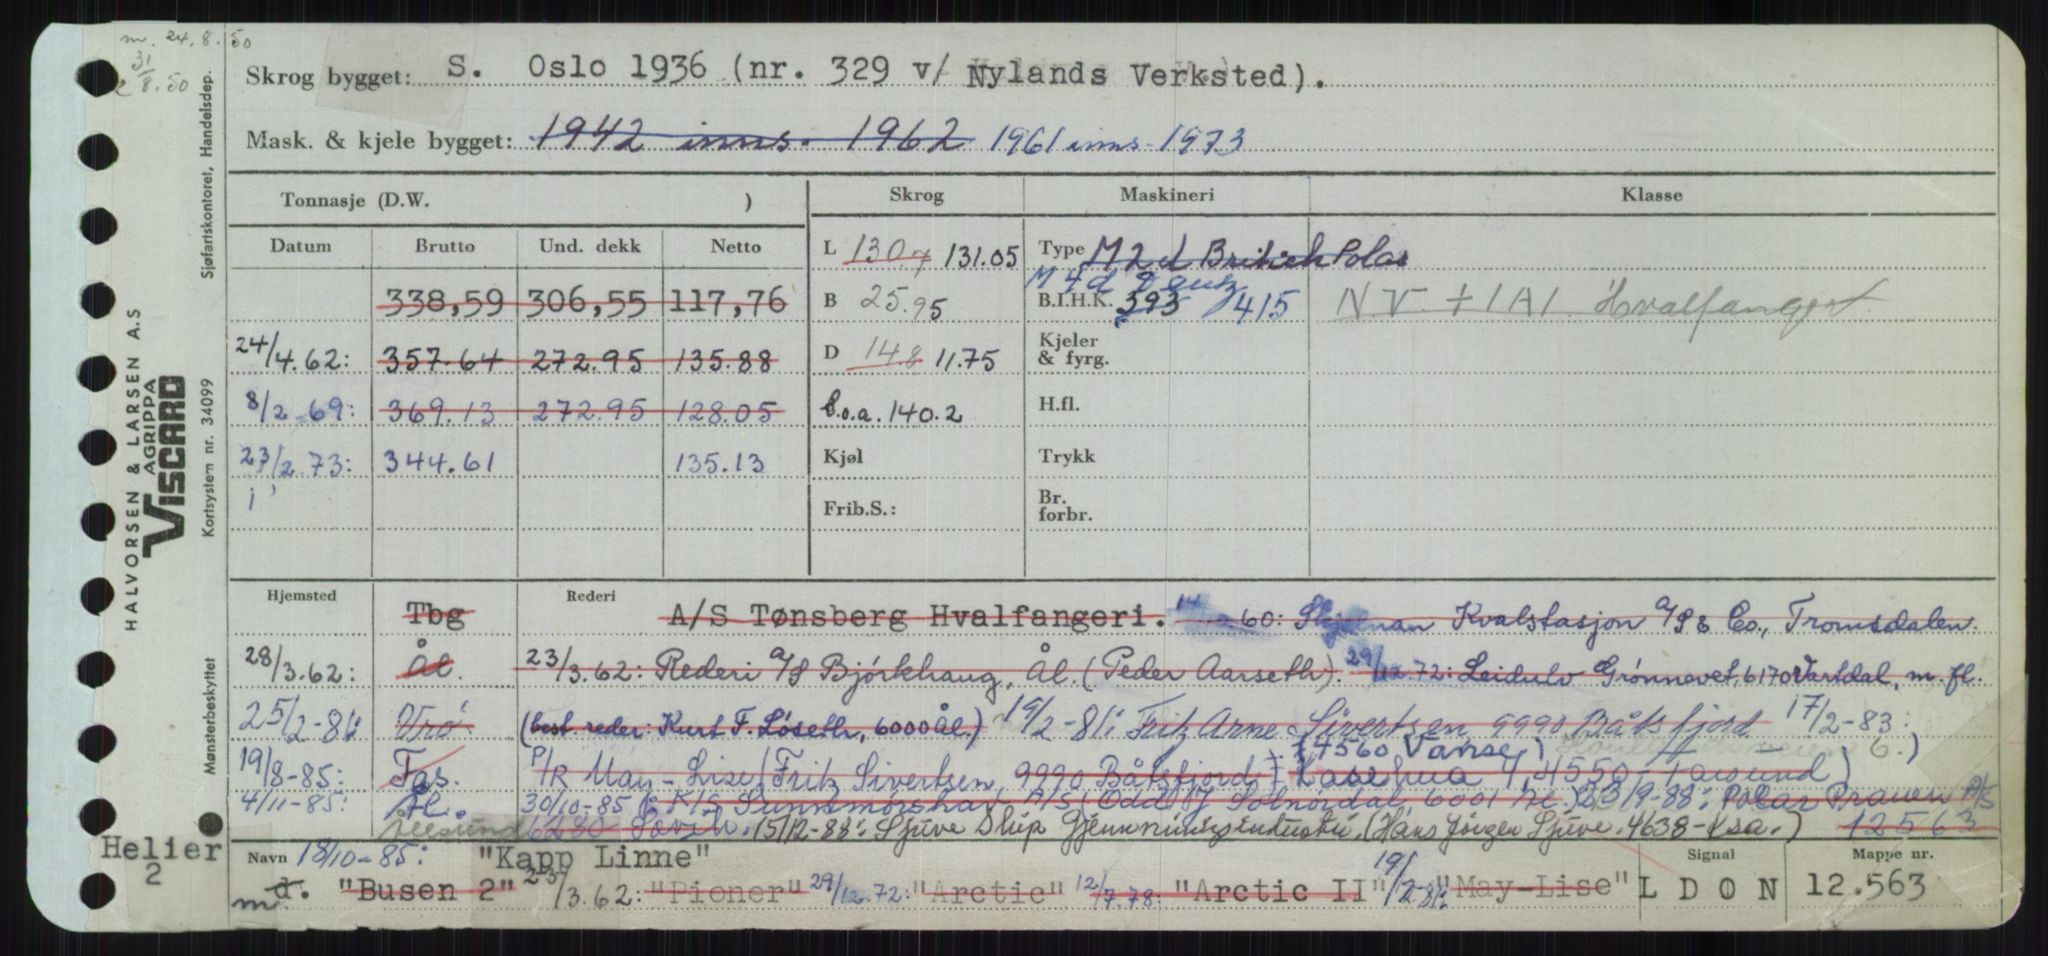 m. 24.8.50
31/8.50
Skrog bygget: S. Oslo 1936 (nr. 329 v/ Nylands Verksted).
Mask. & kjele bygget: 1942 inns. 1962 1961 inns. 1973
Tonnasje (D.W. ) Skrog Maskineri Klasse
Datum Brutto Und. dekk Netto L 130.7 131.05 Type M 2 d British Polar
M 4 d Deutz
338,59 306,55 117,76 B 25.95 B.I.H.K. 393 415 N.V. + 1A1 Hvalfangst
24/4.62: 357.64 272.95 135.88 D 14.8 11.75 Kjeler & fyrg.
8/2.69: 369.13 272.95 128.05 l.o.a. 140.2 H.fl.
23/2.73: 344.61 135.13 Kjøl Trykk
Frib.S.: Br. forbr.
Hjemsted Tbg Rederi A/S Tønsberg Hvalfangeri. 60: Kvalstasjon A/S & Co., Tromsdalen.
28/3.62: Ål. 23/3.62: Rederi A/S Bjørkhaug, Ål. (Peder Aarseth). 29/12.72: Leidulv Grønnevet, 6170 Vartdal, m.fl.
25/2-81: Vrö (best. reder: Kurt F. Løseth, 6000 Ål.) 19/2-81: Fritz Arne Sivertsen 9990 Båtsfjord 17/2-83:
4560 Vanse)
19/8-85: Fas. P/R May-Lise (Fritz Sivertsen, 9990 Båtsfjord) 4550 Farsund)
4/11-85: Ål. 30/10-85: K/S Sunnmørshav A/S (Odd Solnørdal, 6001 Ål.) 23/9-88: Polar Prawn A/S
Ålesund 6280 Søvik. 15/12-88: Sjuve Skip Gjenvinningsindustri, (Hans Jörgen Sjuve. 4638-Krsa.) 12563
Navn 18/10-85: "Kapp Linne" Signal Mappe nr.
m d. "Busen 2" 23/3.62: "Pioner" 29/12.72: "Arctic" 12/7.78: "Arctic II" 19/2-81: "May-Lise" L D O N 12.563
Helier
2
Mønsterbeskyttet Kortsystem nr. 34099 Sjøfartskontoret, Handelsdep.
HALVORSEN & LARSEN A.S
AGRIPPA
VISCARD